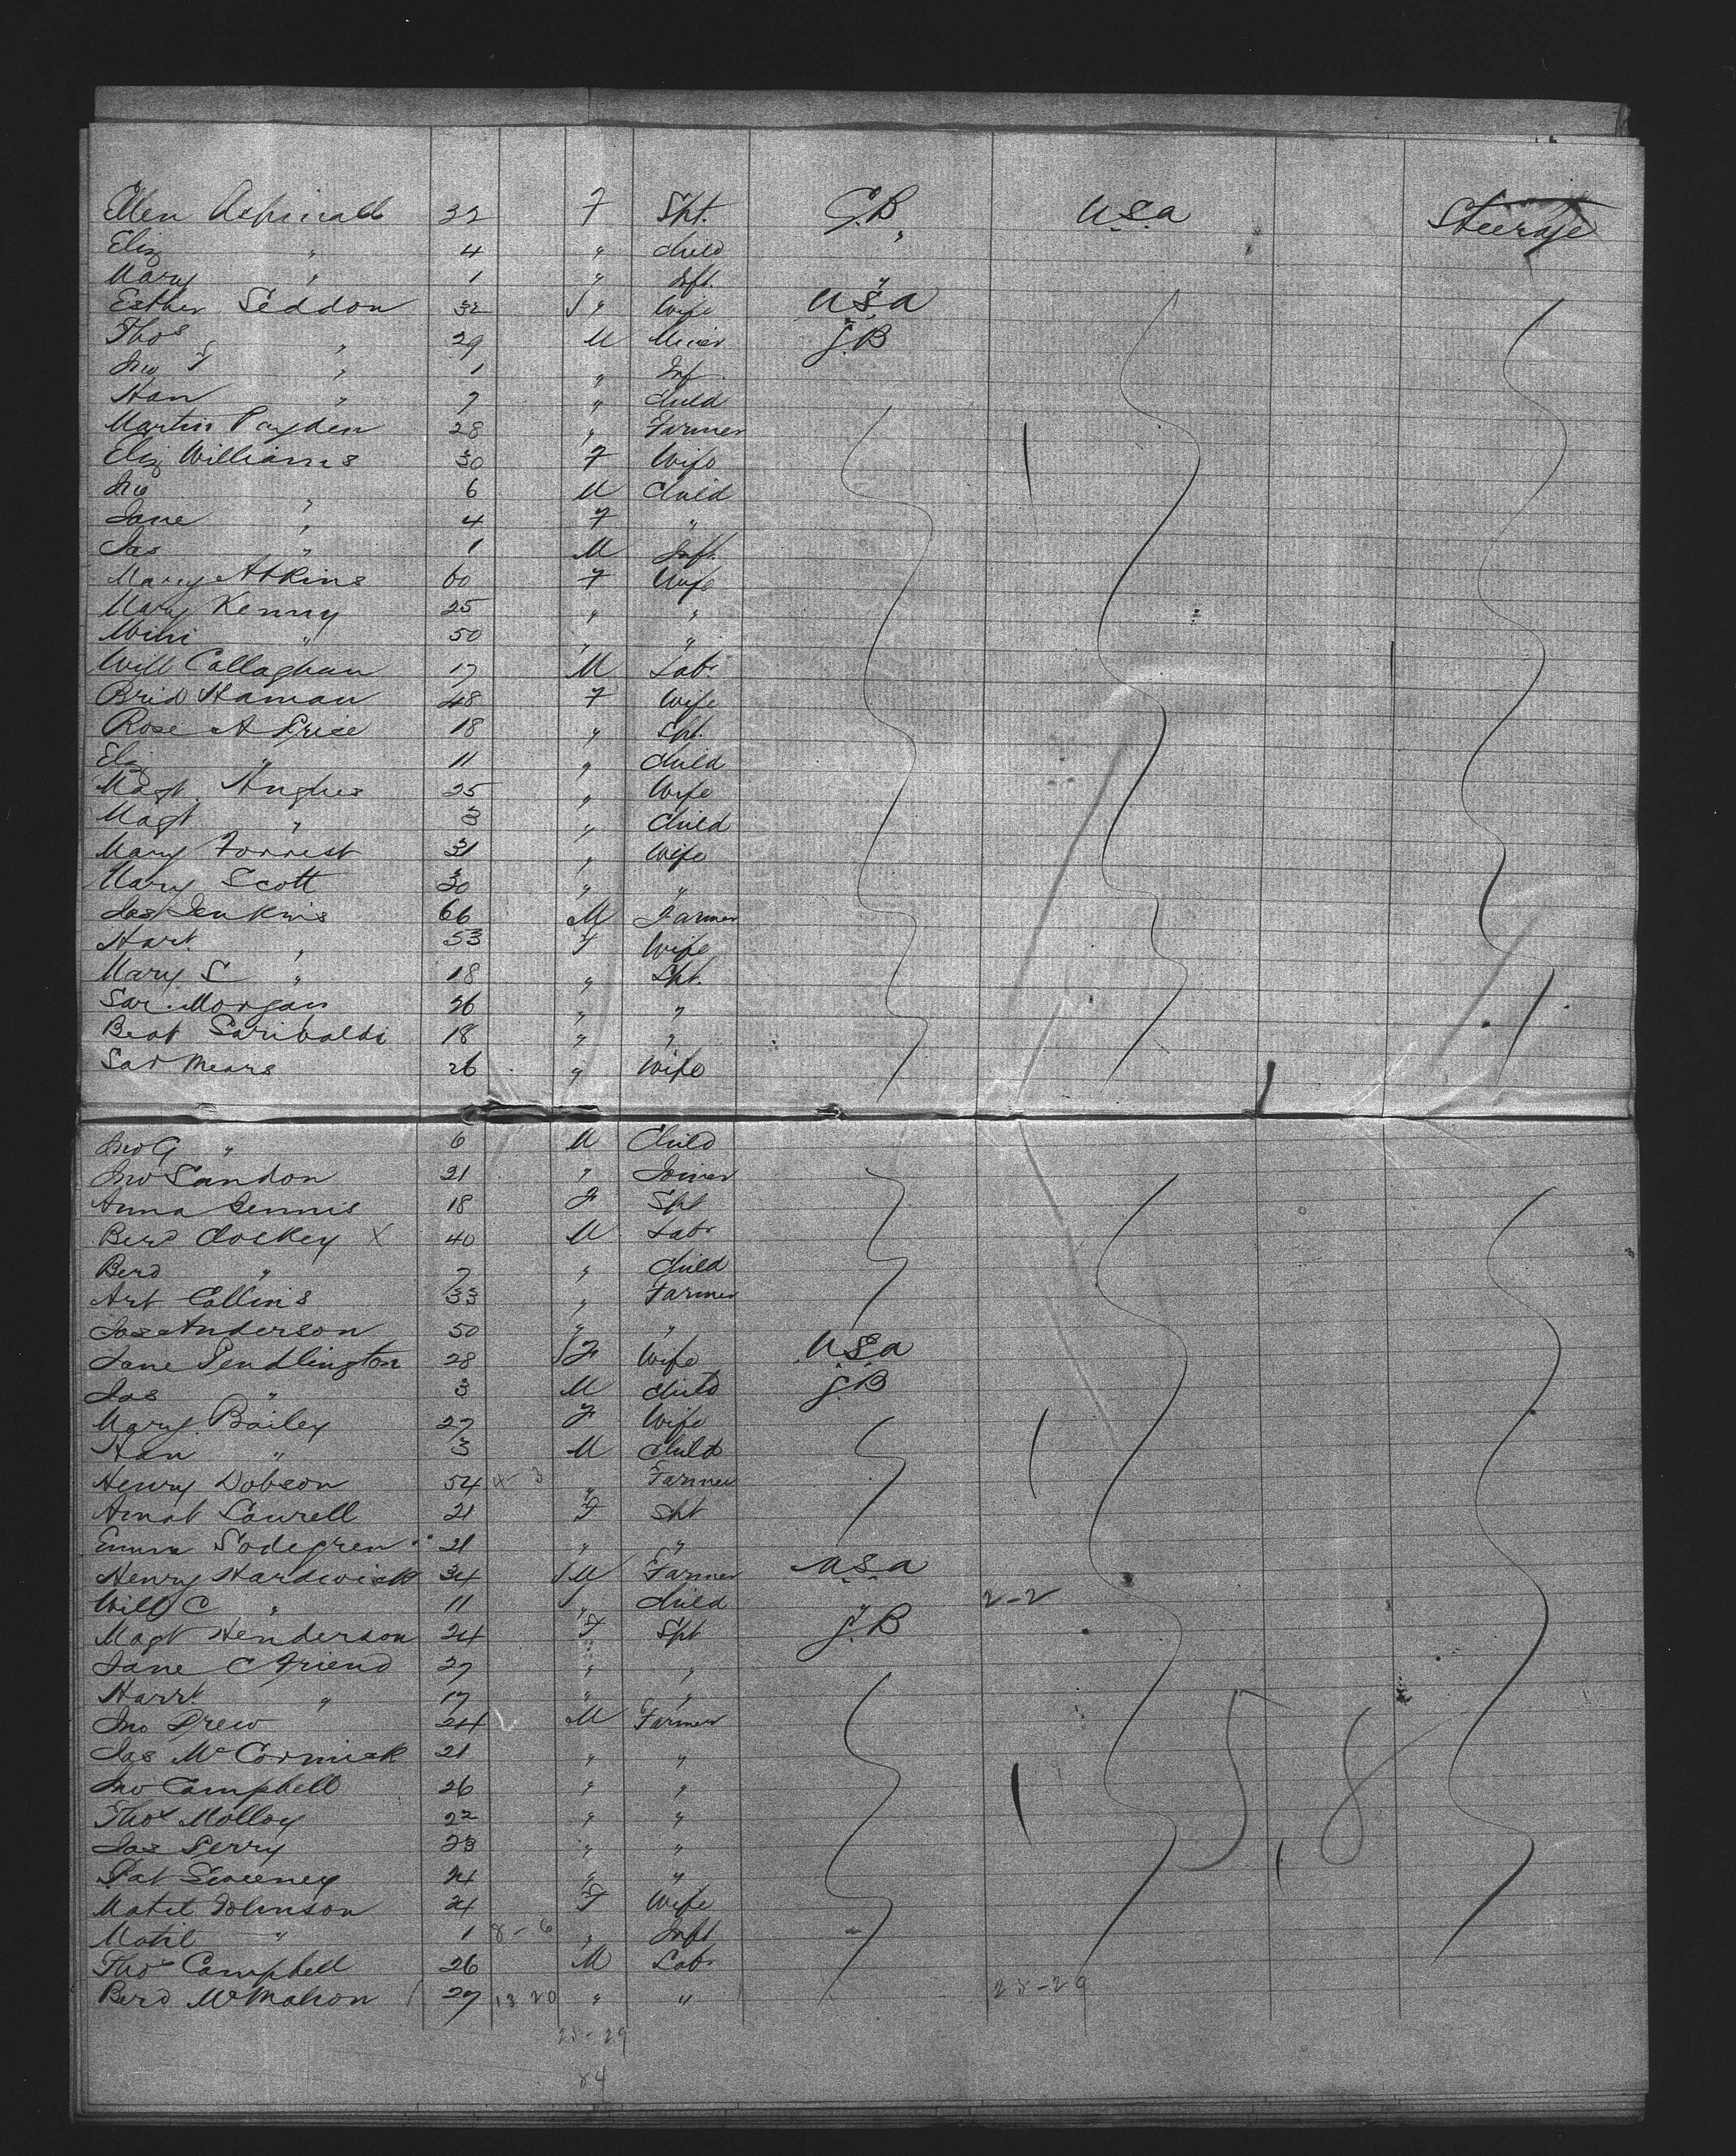 Ellen Aspinall 32 F Spt. G.B U.S.A Steerage
Eliz " 4 " Child "
Mary " 1 " Inft. "
Esther Seddon 32 " Wife U.S.A
Thos " 29 M Miner G.B
Jno T " 1 " Inf
Han " 7 " Child
Martin 28 " Farmer
Eliz Williams 30 F Wife
Jno " 6 M Child
Jane " 4 F "
Jas " 1 M Inft.
Mary Atkins 60 F Wife
Mary Kenny 25 " "
Wini " 50 " "
Will Callaghan 17 M Labr
Brid Hanan 48 F Wife
Rose A Price 18 " Spt.
Eliz " 11 " Child
Magt. Hughes 25 " Wife
Magt " 3 " Child
Mary Forrest 31 " Wife
Mary Scott 30 " "
Jas Jenkins 66 M Farmer
Hart. " 53 F Wife
Mary S " 18 " Spt.
Sar. Morgan 26 " "
Beat Garibaldi 18 " "
Sar Mears 26 " Wife
Jno G " 6 M Child
Jno Sandon 21 " Joiner
Anna Jennis 18 F Spt
Berd Clockey X 40 M Labr
Berd " 7 " Child
Art Collins 33 " Farmer
Jas Anderson 50 " "
Jane Pendlington 28 F Wife U.S.A
Jas " 3 M Child G.B
Mary Bailey 27 F Wife
Han " 3 M Child
Henry Dobson 54 " Farmer
Amat Laurell 21 F Spt
Emma Sodegren 21 " "
Henry Hardwick 34 M Farmer U.S.A
Will C " 11 " Child " 2-2
Magt Henderson 24 F Spt G.B
Jane C Friend 27 " "
Harrt. " 17 " "
Jno Drew 24 M Farmer
Jas McCormick 21 " "
Jno Campbell 26 " "
Thos Molloy 22 " "
Jas Perry 23 " "
Pat Sweeney 24 " "
Matil Johnson 24 F Wife
Matil " 1 8-6 " Inft
Thos Campbell 26 M Labr
Berd McMahon 27 13 20 " " 25-29
25-29
84